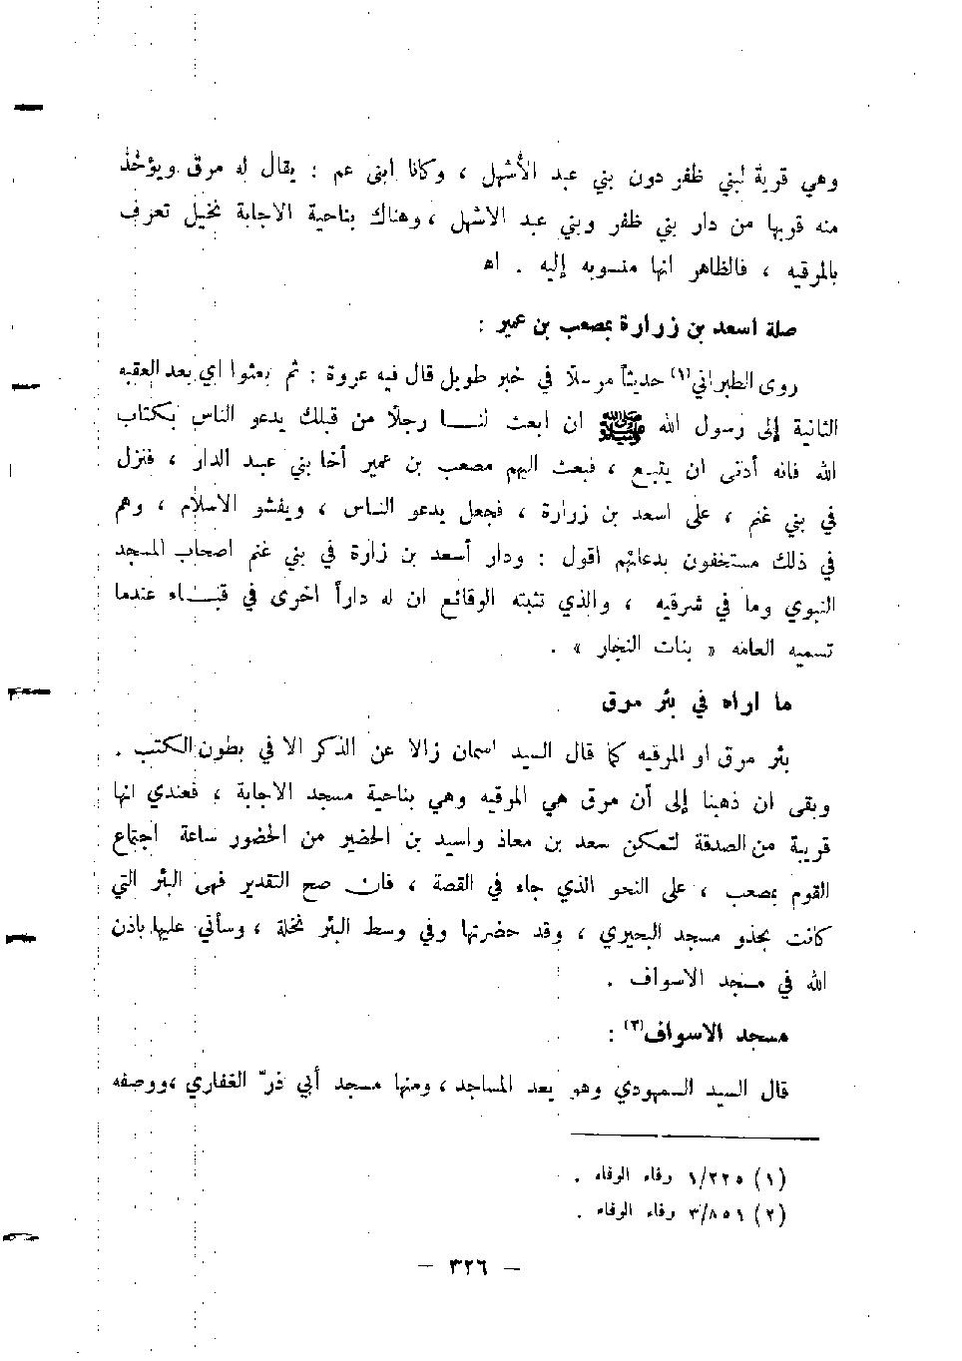 وهي قرية لبني ظفر دون بني عبد الأشهل ، وكانا ابنى عم : يقال له مرق ويؤخذ
منه قربها من دار بني ظفر وبني عبد الاشهل ، وهناك بناحية الاجابة نخيل تعرف
بالمرقيه ، فالظاهر انها منسوبه إليه . اه
صلة اسعد بن زرارة بمصعب بن عمير :
روى الطبراني (١) حديثاً مرسلاً في خبر طويل قال فيه عروة : ثم بعثوا اي بعد العقبه
الثانية إلى رسول الله ﷺ ان ابعث لنا رجلاً من قبلك يدعو الناس بكتاب
الله فانه أدنى ان يتبع ، فبعث اليهم مصعب بن عمير أخا بني عبد الدار ، فنزل
في بني غنم ، على اسعد بن زرارة ، فجعل يدعو الناس ، ويفشو الاسلام ، وهم
في ذلك مستخفون بدعائهم اقول : ودار أسعد بن زارة في بني غنم اصحاب المسجد
النبوي وما في شرقيه ، والذي تثبته الوقائع ان له داراً اخرى في قباء عندما
تسميه العامه « بنات النجار » .
ما اراه في بئر مرق
بئر مرق او المرقيه كما قال السيد اسمان زالا عن الذكر الا في بطون الكتب .
وبقى ان ذهبنا إلى أن مرق هي المرقيه وهي بناحية مسجد الاجابة ، فعندي انها
قريبة من الصدقة لتمكن سعد بن معاذ واسيد بن الحضير من الحضور ساعة اجتماع
القوم بمصعب ، على النحو الذي جاء في القصة ، فان صح التقدير فهى البئر التي
كانت بجذو مسجد البحيري ، وقد حضرتها وفي وسط البئر نخلة ، وسأتي عليها باذن
الله في مسجد الاسواف .
مسجد الاسواف (٢) :
قال السيد السمهودي وهو يعد المساجد ، ومنها مسجد أبي ذرّ الغفاري ،ووصفه
(١) ١/٢٢٥ وفاء الوفاء .
(٢) ٣/٨٥١ وفاء الوفاء .
— ٣٢٦ —